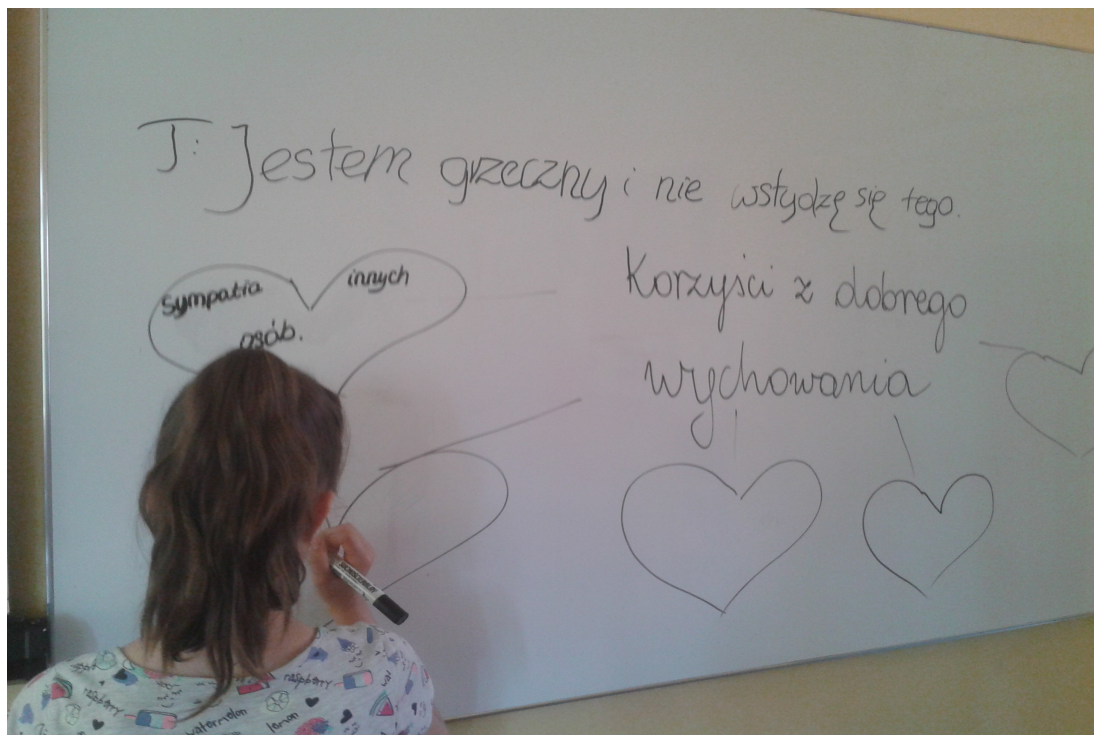 T: Jestem grzeczny i nie wstydzę się tego.
Sympatia innych
osób.
Korzyści z dobrego
wychowania
raspberry
raspberry
watermelon
lemon